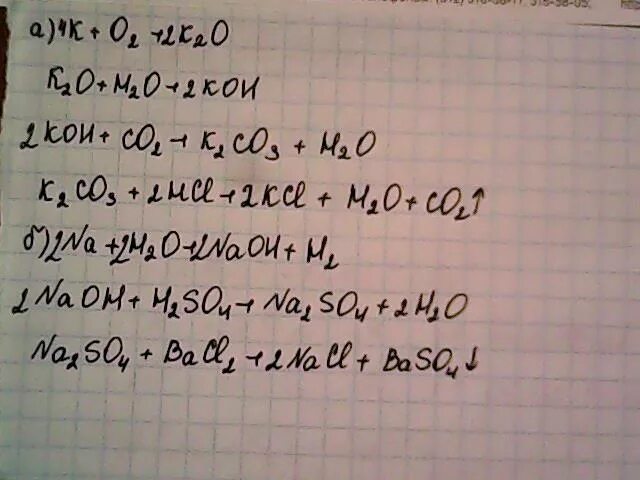 а) 4K + O₂ → 2K₂O
K₂O + H₂O → 2KOH
2KOH + CO₂ → K₂CO₃ + H₂O
K₂CO₃ + 2HCl → 2KCl + H₂O + CO₂↑
б) 2Na + 2H₂O → 2NaOH + H₂
2NaOH + H₂SO₄ → Na₂SO₄ + 2H₂O
Na₂SO₄ + BaCl₂ → 2NaCl + BaSO₄↓